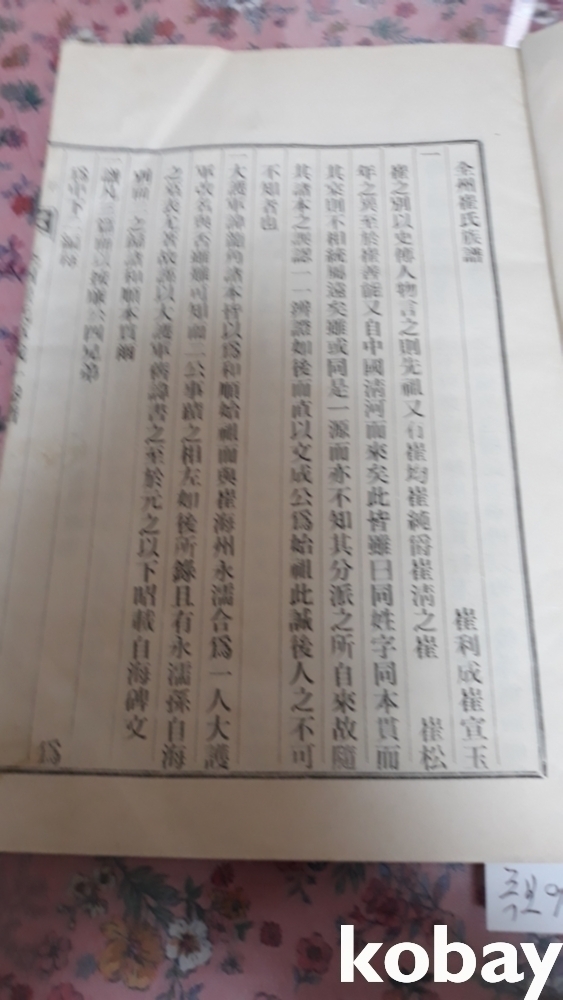 全州崔氏族譜
崔利成崔宣玉
崔之別以史傳人物言之則先祖又有崔均崔純爵崔清之崔
崔松
年之異至於崔善能又自中國清河而來矣此皆雖曰同姓字同本貫而
其家則不相統屬遠矣雖或同是一源而亦不知其分派之所自來故隨
其諸本之誤認一一辨證如後而直以文成公爲始祖此誠後人之不可
不知者也
一大護軍諱龍角諸本皆以爲和順始祖而與崔海州永濡合爲一人大護
軍改名與否雖難可知而二公事蹟之相左如後所錄且有永濡孫自海
之墓表尤著故譜以大護軍舊諱書之至於元之以下昭載自海碑文
別 之歸諸和順本貫爾
一譜凡 篇 公四兄弟
爲中下二編
kobay